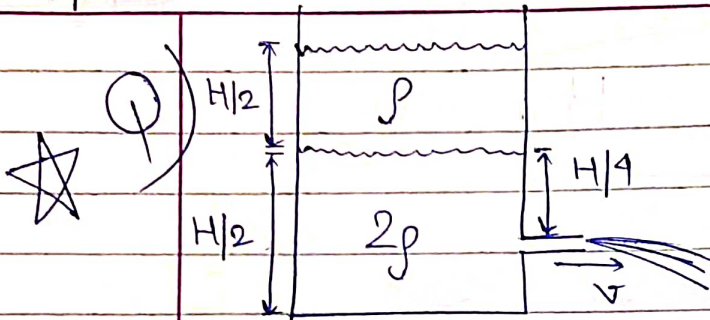 Q
H/2
ρ
H/4
H/2
2ρ
v